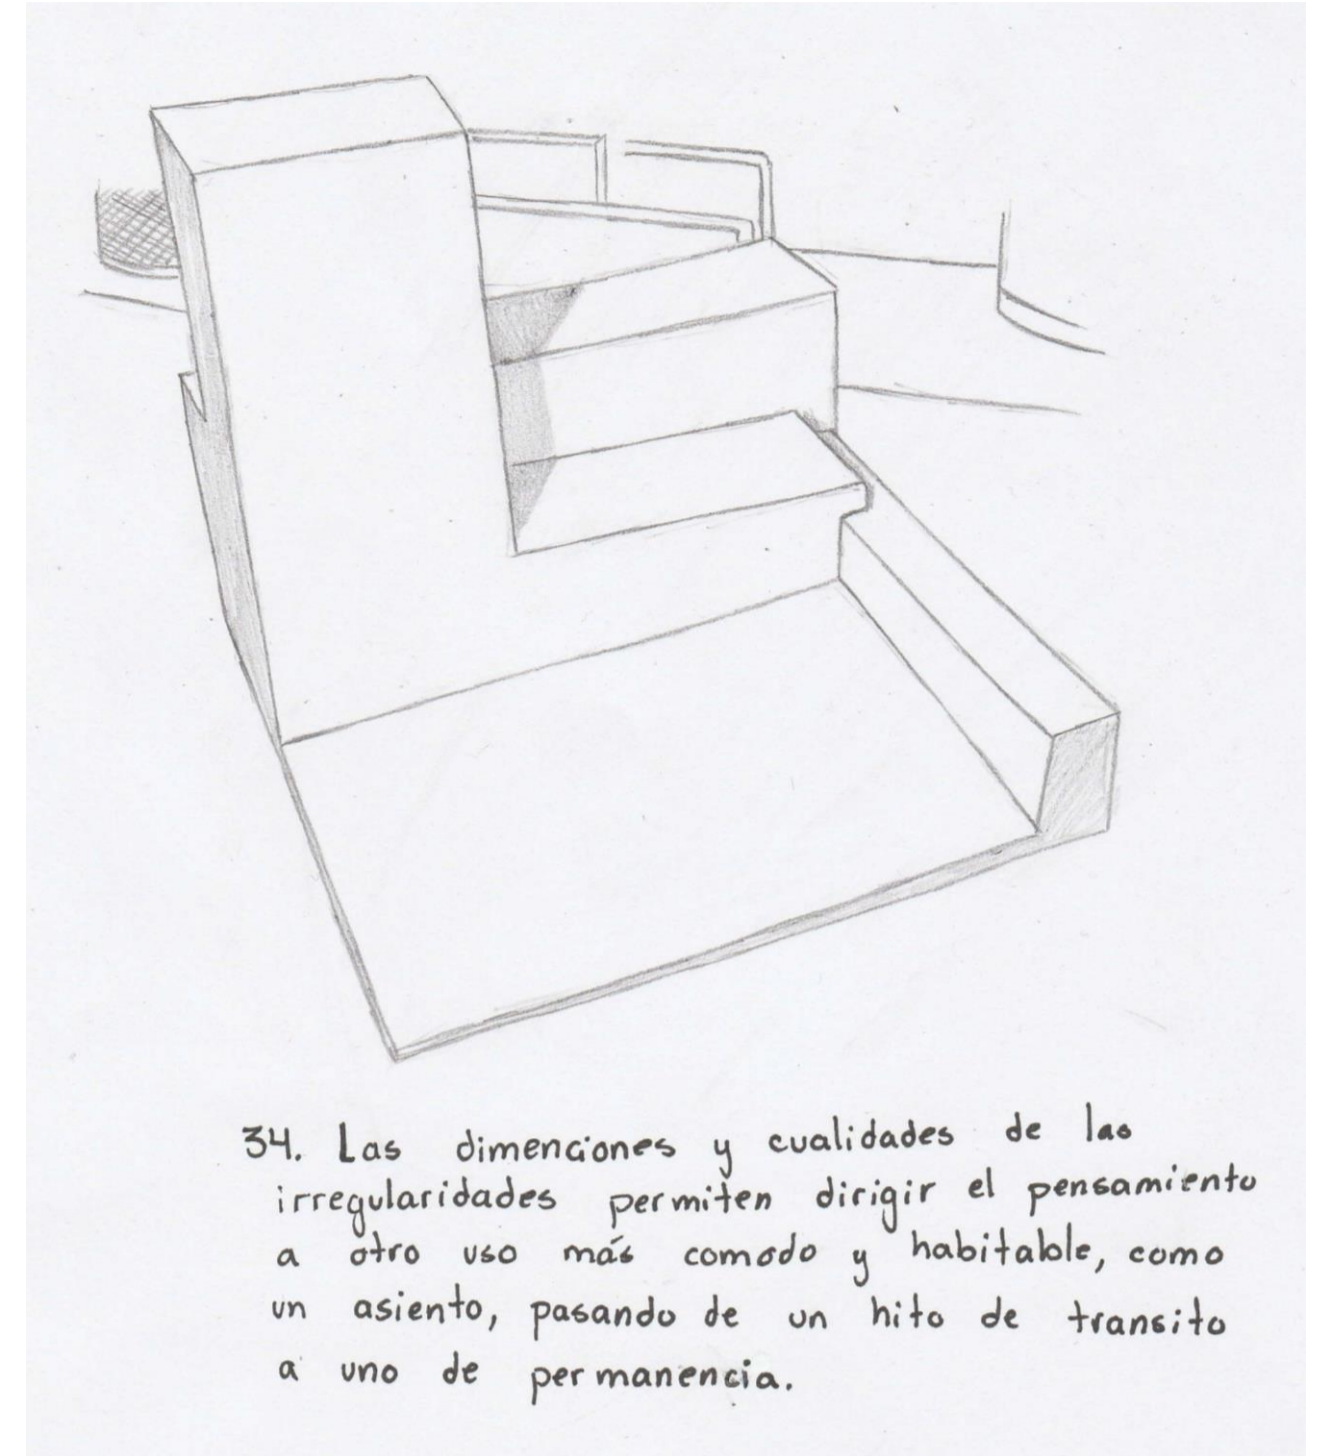 34. Las dimenciones y cualidades de las
irregularidades permiten dirigir el pensamiento
a otro uso más comodo y habitable, como
un asiento, pasando de un hito de transito
a uno de permanencia.